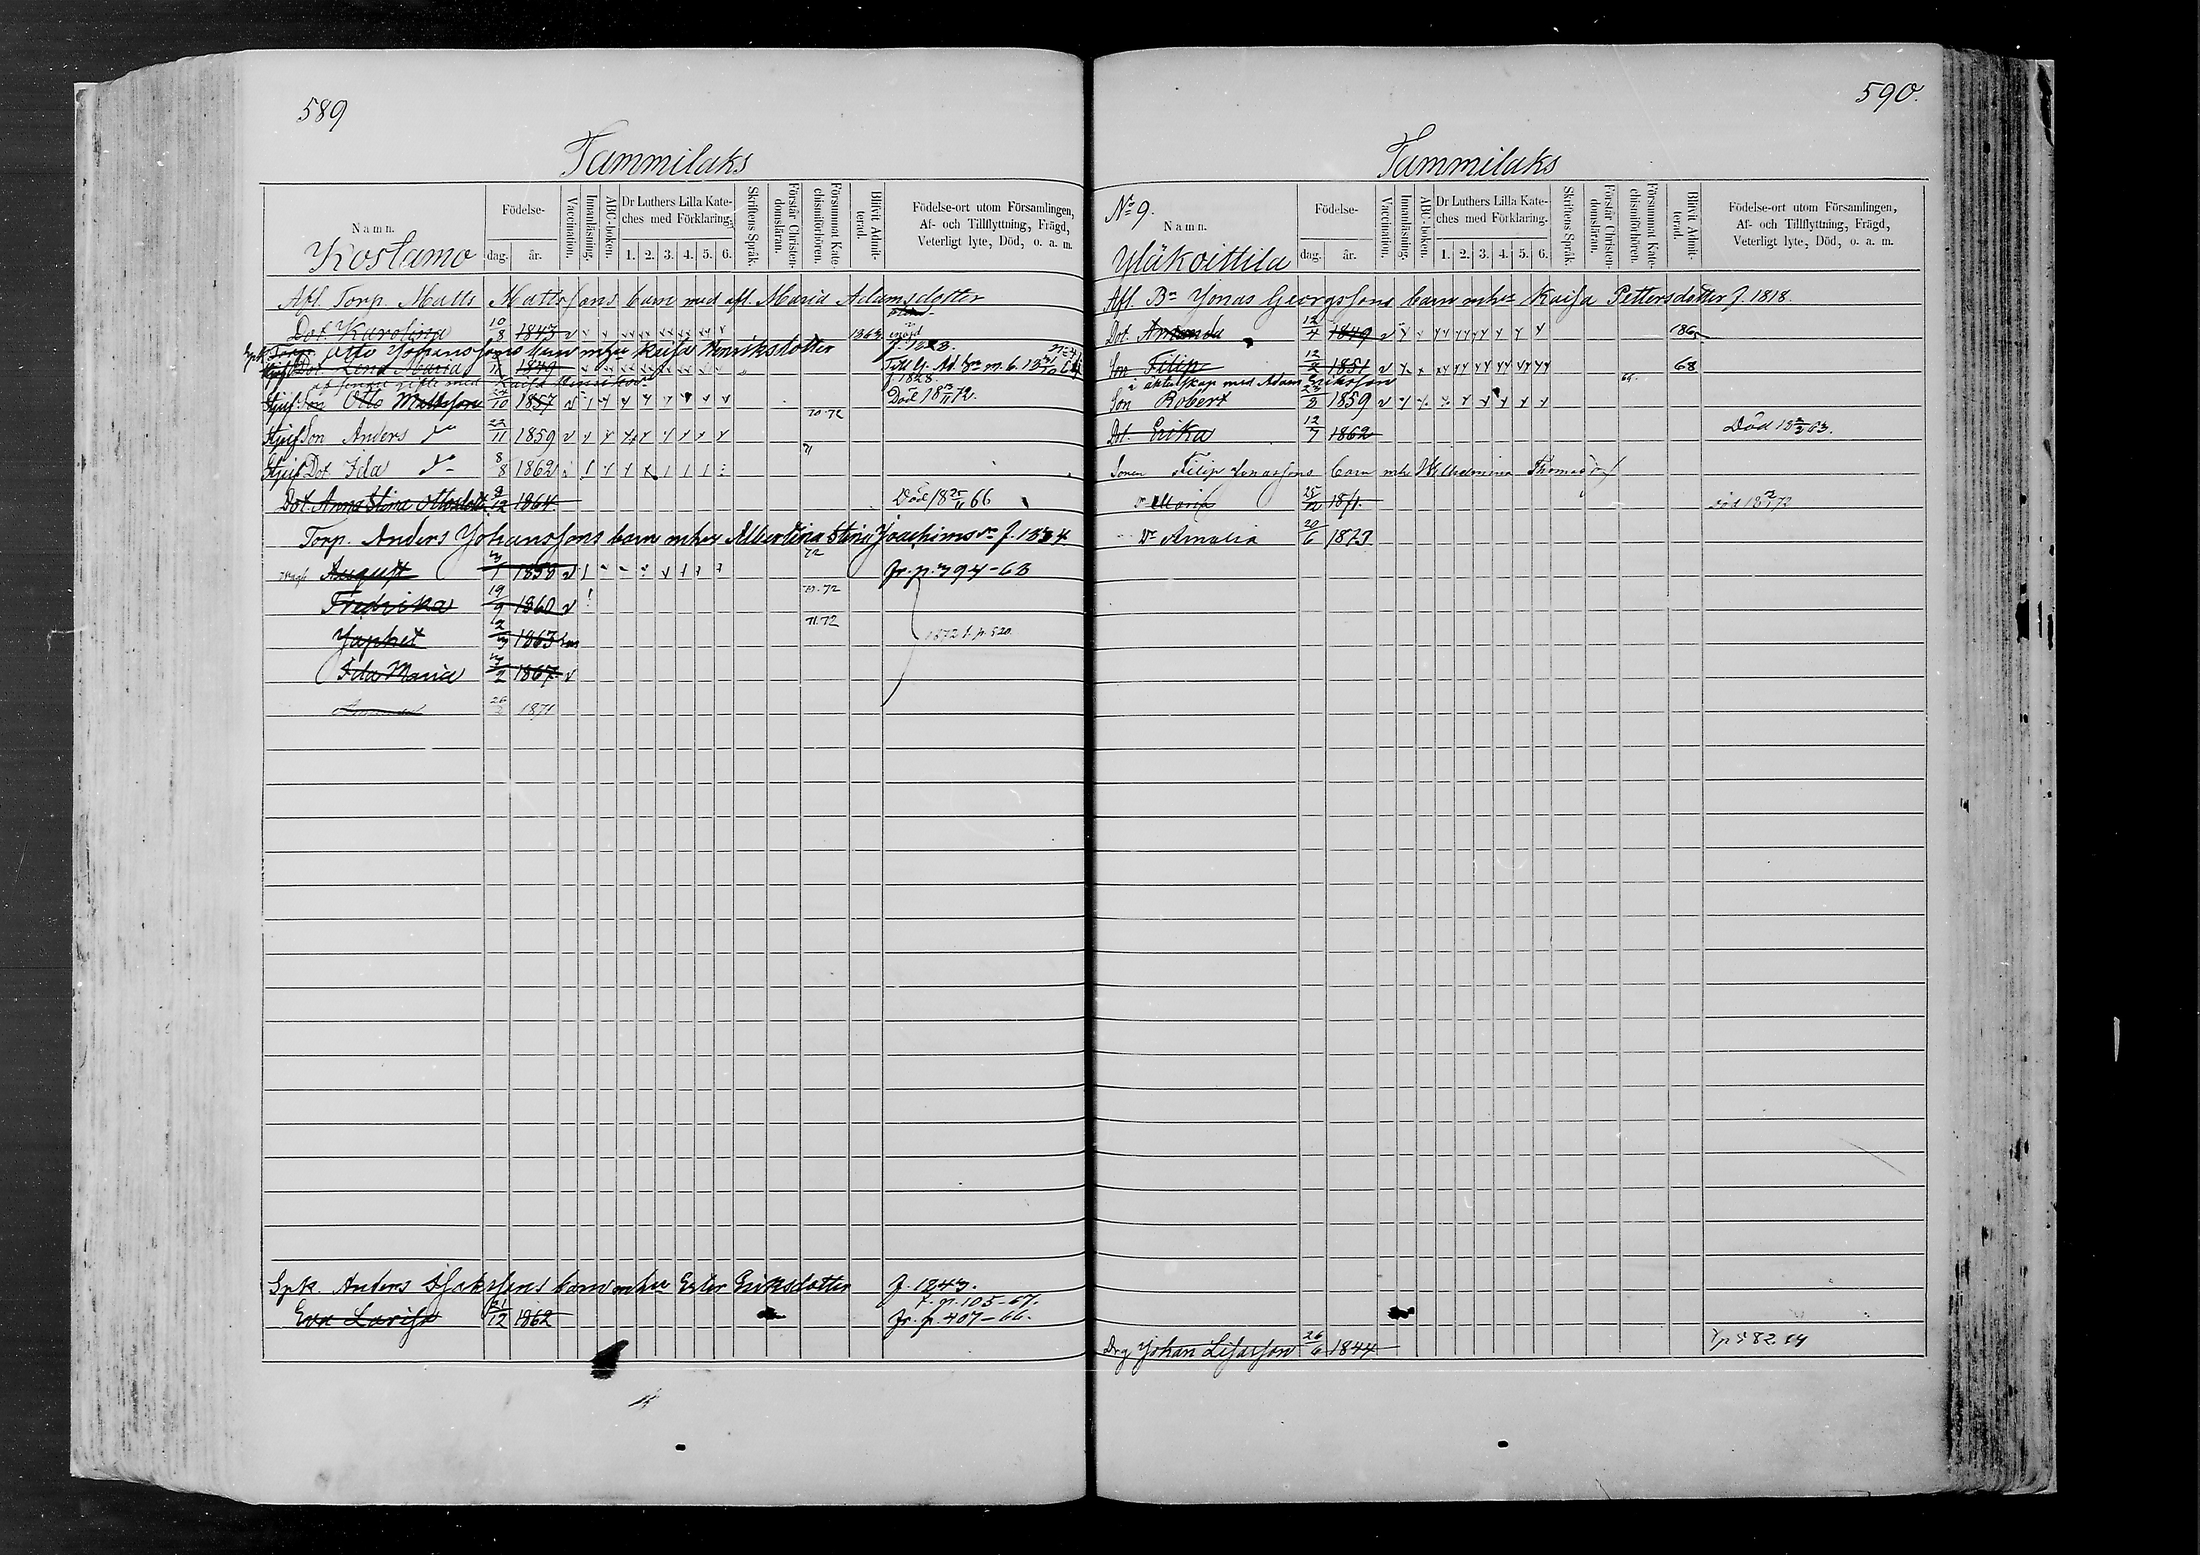 589
Tammilaks
Namn.
Kostamo
Födelse-
dag.
år.
Vaccination.
Innanläsning.
ABC-boken.
Dr Luthers Lilla Kate-
ches med Förklaring.
1. 2. 3. 4. 5. 6.
Skriftens Språk.
Förstår Christen-
domsläran.
Försummat Kate-
chismiförhören.
Blivit Admit-
terad.
Födelse-ort utom Församlingen,
Af- och Tillflyttning, Frägd,
Veterligt lyte, Död, o. a. m.
Afl. Torp. Matts Mattssons barn med afl. Maria Adamsdotter
Dot. Karolina 10/8 1843 v 1863
Otto Johanssons barn mhu Kaisa Henriksdotter
Dot. Lena Maria 1849
f 1828.
Stjuf Son Otto Mattsson 10 1857 Död 18 72.
70-72
Stjuf Son Anders do 22/11 1859 v
71
Stjuf Dot. Ida do 8/8 1862
Dot. Anna Stina 9/12 1864 Död 18 25/11 66
Torp. Anders Johanssons barn mhu Albertina Stina Joachimsdr f. 1834
72
August 1858 v fr. p. 394-63
Fredrika 19/9 1860 v 70.72
Japhet 1863 71.72 1872 t. p. 520.
Ida Maria 1867 v
26 1871
Spk. Anders barn mhu Ester Eriksdotter f. 1843.
t. p. 105-67.
Eva Lovisa 21/12 1862 fr. p. 407-66.
590.
Tammilaks
No 9.
Namn.
Yläkoittila
Födelse-
dag.
år.
Vaccination.
Innanläsning.
ABC-boken.
Dr Luthers Lilla Kate-
ches med Förklaring.
1. 2. 3. 4. 5. 6.
Skriftens Språk.
Förstår Christen-
domsläran.
Försummat Kate-
chismiförhören.
Blivit Admit-
terad.
Födelse-ort utom Församlingen,
Af- och Tillflyttning, Frägd,
Veterligt lyte, Död, o. a. m.
Afl. Bn Jonas Georgssons barn mhu Kaisa Pettersdotter f. 1818.
Dot. Amanda 12/4 1849 v 1865
Son Filip 12/2 1851 v 68
i äktenskap med Adam Eriksson
Son Robert 1859 v
Dot. Erika 12/7 1862 Död 18 63.
Sonen Filip Jonassons barn mhu Wilhelmina Thomasdr
Do Maria 25/12 1871. död 18 72
Do Amalia 20/6 1873
Drg Johan 26/6 1844